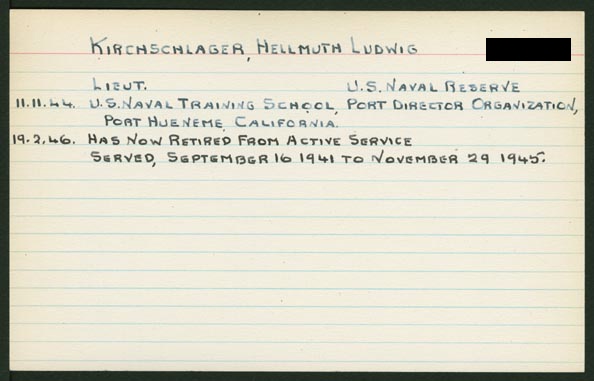 KIRCHSCHLAGER, HELLMUTH LUDWIG
LIEUT. U.S. NAVAL RESERVE
11.11.44. U.S. NAVAL TRAINING SCHOOL, PORT DIRECTOR ORGANIZATION,
PORT HUENEME, CALIFORNIA.
19.2.46. HAS NOW RETIRED FROM ACTIVE SERVICE
SERVED, SEPTEMBER 16 1941 TO NOVEMBER 29 1945.